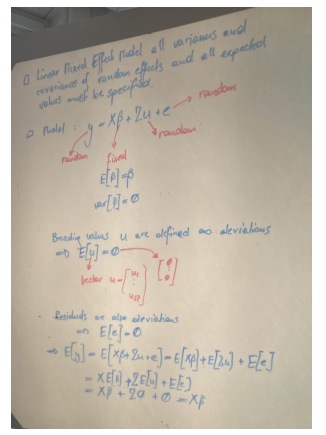 □ Linear Mixed Effect Model all variances and
covariances of random effects and all expected
values must be specified.
□ Model : y = Xβ + Zu + e → random
random fixed random
E[β] = β
var[β] = 0
Breeding values u are defined as deviations
⇒ E[u] = 0 → [0 ⋮ 0]
vector u = [u₁ ⋮
Residuals are also deviations
⇒ E[e] = 0
⇒ E[y] = E[Xβ + Zu + e] = E[Xβ] + E[Zu] + E[e]
= XE[β] + ZE[u] + E[e]
= Xβ + Z0 + 0 = Xβ